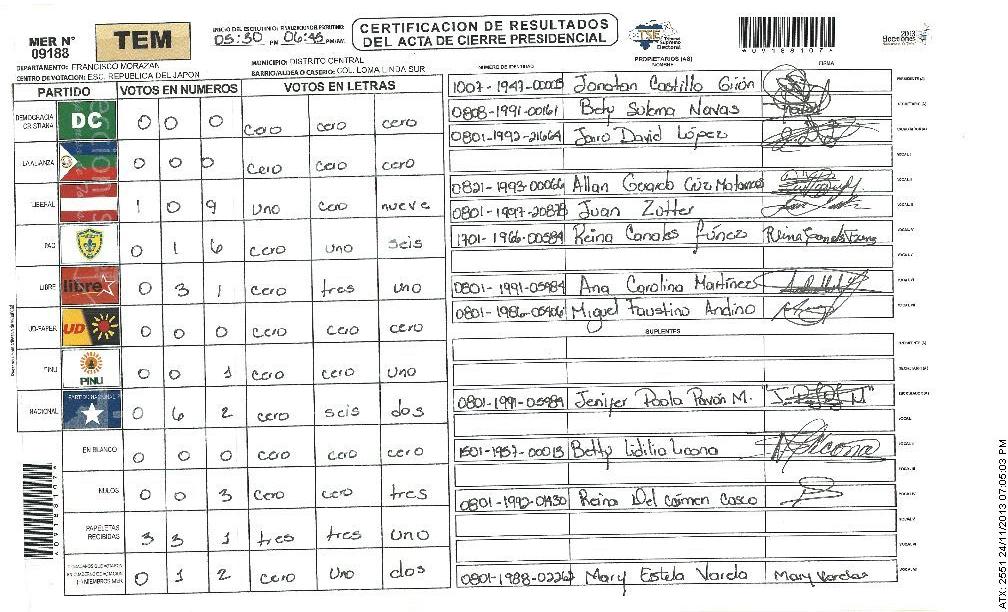 MER N° 09188
TEM
INICIO DEL ESCRUTINIO: 05:30 PM FINALIZACION DEL ESCRUTINIO: 06:45 PM/AM.
CERTIFICACION DE RESULTADOS
DEL ACTA DE CIERRE PRESIDENCIAL
TSE
Tribunal Supremo Electoral
2013
Elecciones
DEPARTAMENTO: FRANCISCO MORAZAN
MUNICIPIO: DISTRITO CENTRAL
CENTRO DE VOTACION: ESC. REPUBLICA DEL JAPON
BARRIO/ALDEA O CASERIO: COL. LOMA LINDA SUR
PARTIDO VOTOS EN NUMEROS VOTOS EN LETRAS
DEMOCRACIA CRISTIANA DC 0 0 0 cero cero cero
LA ALIANZA 0 0 0 cero cero cero
LIBERAL 1 0 9 uno cero nueve
PAC 0 1 6 cero uno seis
LIBRE libre 0 3 1 cero tres uno
UD-FAPER UD 0 0 0 cero cero cero
PINU PINU 0 0 1 cero cero uno
NACIONAL PARTIDO NACIONAL 0 6 2 cero seis dos
EN BLANCO 0 0 0 cero cero cero
NULOS 0 0 3 cero cero tres
PAPELETAS RECIBIDAS 3 3 1 tres tres uno
0 1 2 cero uno dos
NUMERO DE IDENTIDAD PROPIETARIOS (AS) NOMBRE FIRMA
1007-1947-00015 Jonatan Castillo Girón
0808-1991-00161 Bety Sulema Navas
0801-1992-21664 Jairo David López
0821-1993-00066 Allan Gerardo Cruz Matamoros
0801-1997-20878 Juan Zotter
1701-1966-00584 Reina Canales Fúnez
0801-1991-05984 Ana Carolina Martínez
0801-1986-05406 Miguel Faustino Andino
SUPLENTES
0801-1991-05984 Jenifer Paola Pavón M.
1501-1957-00015 Betty Lidilia Licona
0801-1992-01430 Reina Del Carmen Casco
0801-1988-02267 Mary Estela Varela Mary Varelas
ATX: 2551 24/11/2013 07:05:03 PM